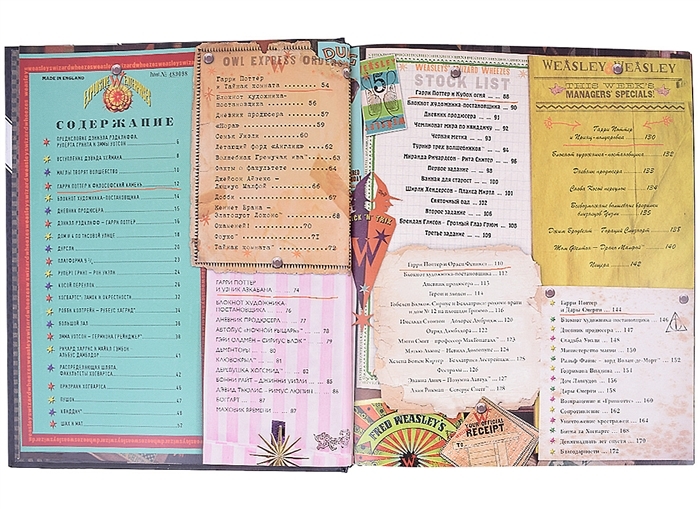 MADE IN ENGLAND
СОДЕРЖАНИЕ
ПРЕДИСЛОВИЕ ДЭНИЕЛА РЭДКЛИФФА,
РУПЕРТА ГРИНТА И ЭММЫ УОТСОН
ВСТУПЛЕНИЕ ДЭВИДА ХЕЙМАНА
МАГЛЫ ТВОРЯТ ВОЛШЕБСТВО
ГАРРИ ПОТТЕР И ФИЛОСОФСКИЙ КАМЕНЬ 12
БЛОКНОТ ХУДОЖНИКА-ПОСТАНОВЩИКА
ДНЕВНИК ПРОДЮСЕРА
ДЭНИЕЛ РЭДКЛИФФ – ГАРРИ ПОТТЕР
ДОМ 4 ПО ТИСОВОЙ УЛИЦЕ
ДУРСЛИ
ПЛАТФОРМА 9 ¾
РУПЕРТ ГРИНТ – РОН УИЗЛИ
КОСОЙ ПЕРЕУЛОК
ХОГВАРТС: ЗАМОК И ОКРЕСТНОСТИ
РОББИ КОЛТРЕЙН – РУБЕУС ХАГРИД
БОЛЬШОЙ ЗАЛ
ЭММА УОТСОН – ГЕРМИОНА ГРЕЙНДЖЕР
РИЧАРД ХАРРИС И МАЙКЛ ГЭМБОН
АЛЬБУС ДАМБЛДОР
РАСПРЕДЕЛЯЮЩАЯ ШЛЯПА.
ФАКУЛЬТЕТЫ ХОГВАРТСА
ПРИЗРАКИ ХОГВАРТСА
ПУШОК
КВИДДИЧ
ШАХ И МАТ
OWL EXPRESS ORDER
Гарри Поттер
и Тайная комната 54
Блокнот художника-
постановщика 56
Дневник продюсера 57
«Нора» 59
Семья Уизли 60
Летающий форд «Англия» 62
Волшебная Гремучая ива 63
Факты о факультете 64
Джейсон Айзекс –
Люциус Малфой
Добби 67
Кеннет Брана –
Златопуст Локонс 68
Окаменей! 70
Фоукс 71
Тайная комната 72
ГАРРИ ПОТТЕР
И УЗНИК АЗКАБАНА 74
БЛОКНОТ ХУДОЖНИКА
ПОСТАНОВЩИКА 76
ДНЕВНИК ПРОДЮСЕРА 77
АВТОБУС «НОЧНОЙ РЫЦАРЬ»
ГЭРИ ОЛДМЕН – СИРИУС БЛЭК
ДЕМЕНТОРЫ 80
КЛЮВОКРЫЛ 81
ДЕРЕВУШКА ХОГСМИД 82
БОННИ РАЙТ – ДЖИННИ УИЗЛИ 84
ДЭВИД ТЬЮЛИС – РИМУС ЛЮПИН 86
БОГГАРТ 87
МАХОВИК ВРЕМЕНИ 87
WEASLEY'S WIZARD WHEEZES
STOCK LIST
Гарри Поттер и Кубок огня 88
Блокнот художника-постановщика 90
Дневник продюсера 91
Чемпионат мира по квиддичу 92
Черная метка 93
Турнир трех волшебников 94
Миранда Ричардсон – Рита Скитер 96
Первое задание 98
Ванная для старост 100
Ширли Хендерсон – Плакса Миртл 101
Святочный бал 102
Второе задание 106
Брендан Глисон – Грозный Глаз Грюм 108
Третье задание 109
Гарри Поттер и Орден Феникса 110
Блокнот художника-постановщика 112
Дневник продюсера 113
Герои и злодеи 114
Имельда Стонтон – Долорес Амбридж 120
Отряд Дамблдора 122
Хелена Бонем Картер – Беллатриса Лестрейндж
Эванна Линч – Полумна Лавгуд 127
Алан Рикман – Северус Снегг 128
WEASLEY & WEASLEY
THIS WEEK'S
MANAGERS' SPECIALS!
Гарри Поттер
и Принц-полукровка 130
Блокнот художника-постановщика 132
Дневник продюсера 133
134
135
Джим Бродбент – Гораций Слизнорт 138
Том Фелтон – Драко Малфой 140
Пещера 142
Гарри Поттер
и Дары Смерти 144
Блокнот художника-постановщика 146
Дневник продюсера 147
Свадьба Уизли 148
Министерство магии 150
Ральф Файнс – лорд Волан-де-Морт 152
Годрикова Впадина 154
Дом Лавгудов 156
Дары Смерти 158
Возвращение в «Гринготтс» 160
Сопротивление 162
Уничтожение крестражей 164
Битва за Хогвартс 168
Девятнадцать лет спустя 170
Благодарности 172
FRED WEASLEY'S
YOUR OFFICIAL
RECEIPT